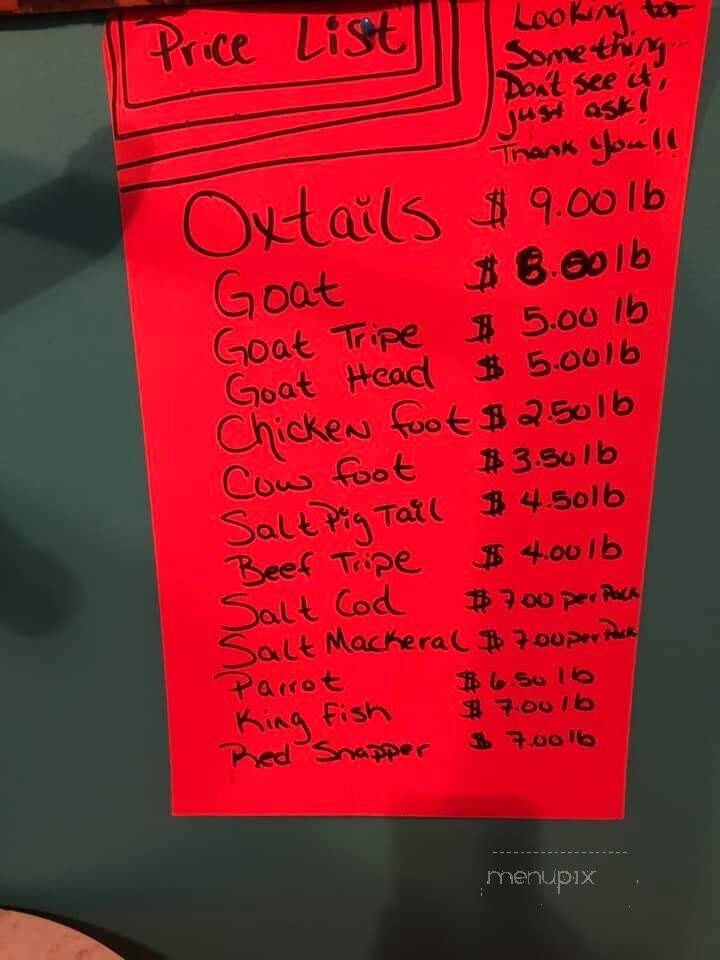 Price List
Looking for
Something...
Don't see it,
just ask!
Thank you!!
Oxtails $ 9.00 lb
Goat $ .00 lb
Goat Tripe $ 5.00 lb
Goat Head $ 5.00 lb
Chicken foot $ 2.50 lb
Cow foot $ 3.50 lb
Salt Pig Tail $ 4.50 lb
Beef Tripe $ 4.00 lb
Salt Cod $ 7.00 per Pack
Salt Mackeral $ 7.00 per Pack
Parrot $ 6.50 lb
King fish $ 7.00 lb
Red Snapper $ 7.00 lb
menupix